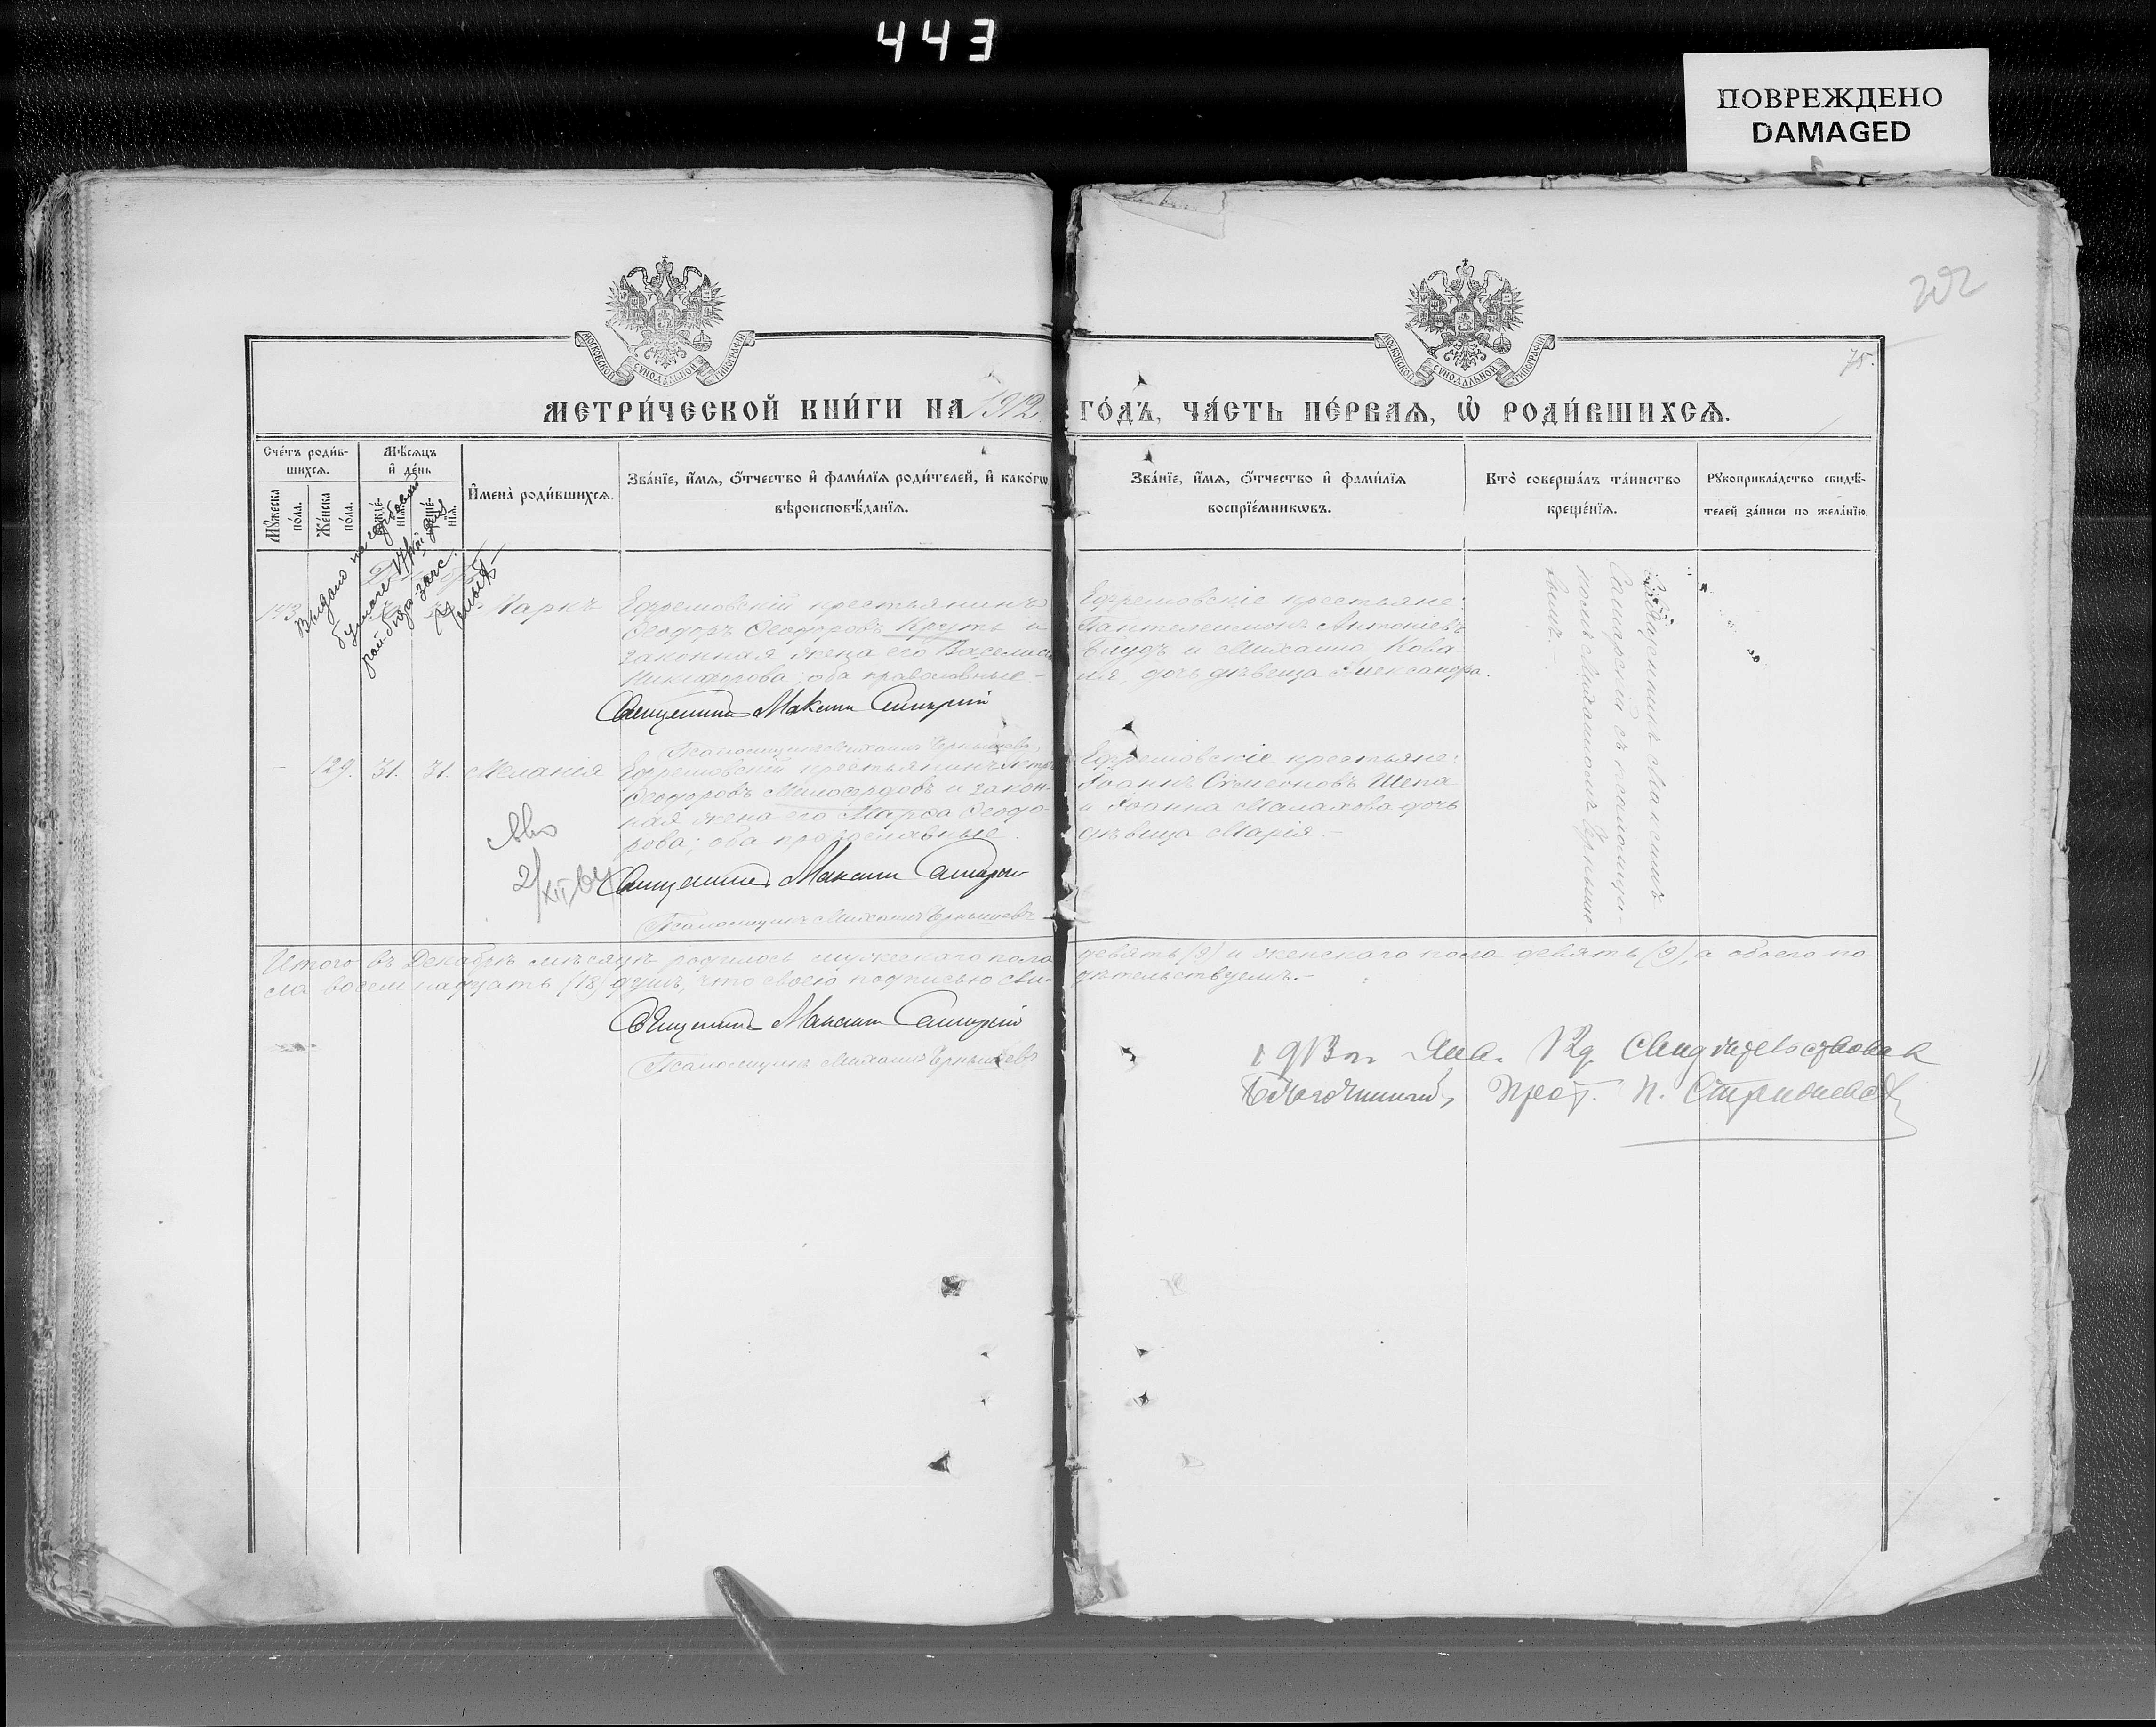 443
ПОВРЕЖДЕНО
DAMAGED
202
75.
МОСКОВСКОЙ СУНОДАЛЬНОЙ ТИПОГРАФІИ
МОСКОВСКОЙ СУНОДАЛЬНОЙ ТИПОГРАФІИ
МЕТРИ́ЧЕСКОЙ КНИ́ГИ НА 1912 ГО́ДЪ, ЧА́СТЬ ПЕ́РВАѦ, Ѡ РОДИ́ВШИХСѦ.
Сче́тъ роди́в-
шихсѧ.
Мꙋ́жеска по́ла.
Же́нска по́ла.
Мѣ́сѧцъ
и҆ де́нь
И҆мена̀ роди́вшихсѧ.
Зва́нїе, и҆́мѧ, ѻ҆́тчество и҆ фами́лїѧ роди́телей, и҆ како́гѡ
вѣроисповѣ́данїѧ.
Зва́нїе, и҆́мѧ, ѻ҆́тчество и҆ фами́лїѧ
воспрїе́мникѡвъ.
Кто̀ соверша́лъ та́инство
креще́нїѧ.
Рꙋкоприкла́дство свидѣ́-
телей за́писи по жела́нїю.
Выдано на
143
Маркъ
Ефремовскій крестьянинъ
Ѳеодоръ Ѳеодоровъ Крутъ и
законная жена его Василиса
Никифорова; оба православные.-
Священникъ Максимъ Самарскій
Псаломщикъ Михаилъ Чернышевъ
Ефремовскіе крестьяне:
Пантелеимонъ Антоніевъ
и Михаила Кова
ля, дочь дѣвица Александра.
Священникъ Максимъ
Самарскій съ псаломщи-
комъ Михаиломъ Черныше-
вымъ.-
- 129. 31. 31. Меланія
Ефремовскій крестьянинъ
Ѳеодоровъ Милосердовъ и закон-
ная жена его Марѳа Ѳеодо-
рова; оба православные.
Священникъ Максимъ Самарскій
Псаломщикъ Михаилъ Чернышевъ
2/XII
Ефремовскіе крестьяне:
Іоаннъ Симеоновъ Шепа
и Іоанна Малахова дочь
дѣвица Марія.-
Итого въ Декабрѣ мѣсяцѣ родилось мужескаго пола девять (9) и женскаго пола девять (9), а обоего по-
ла восемнадцать (18) душъ, что своею подписью сви- дѣтельствуемъ.-
Священникъ Максимъ Самарскій
Псаломщикъ Михаилъ Чернышевъ
1913 г. Янв. 12 д. Свидѣтельствовалъ
Благочинный, Прот. П.